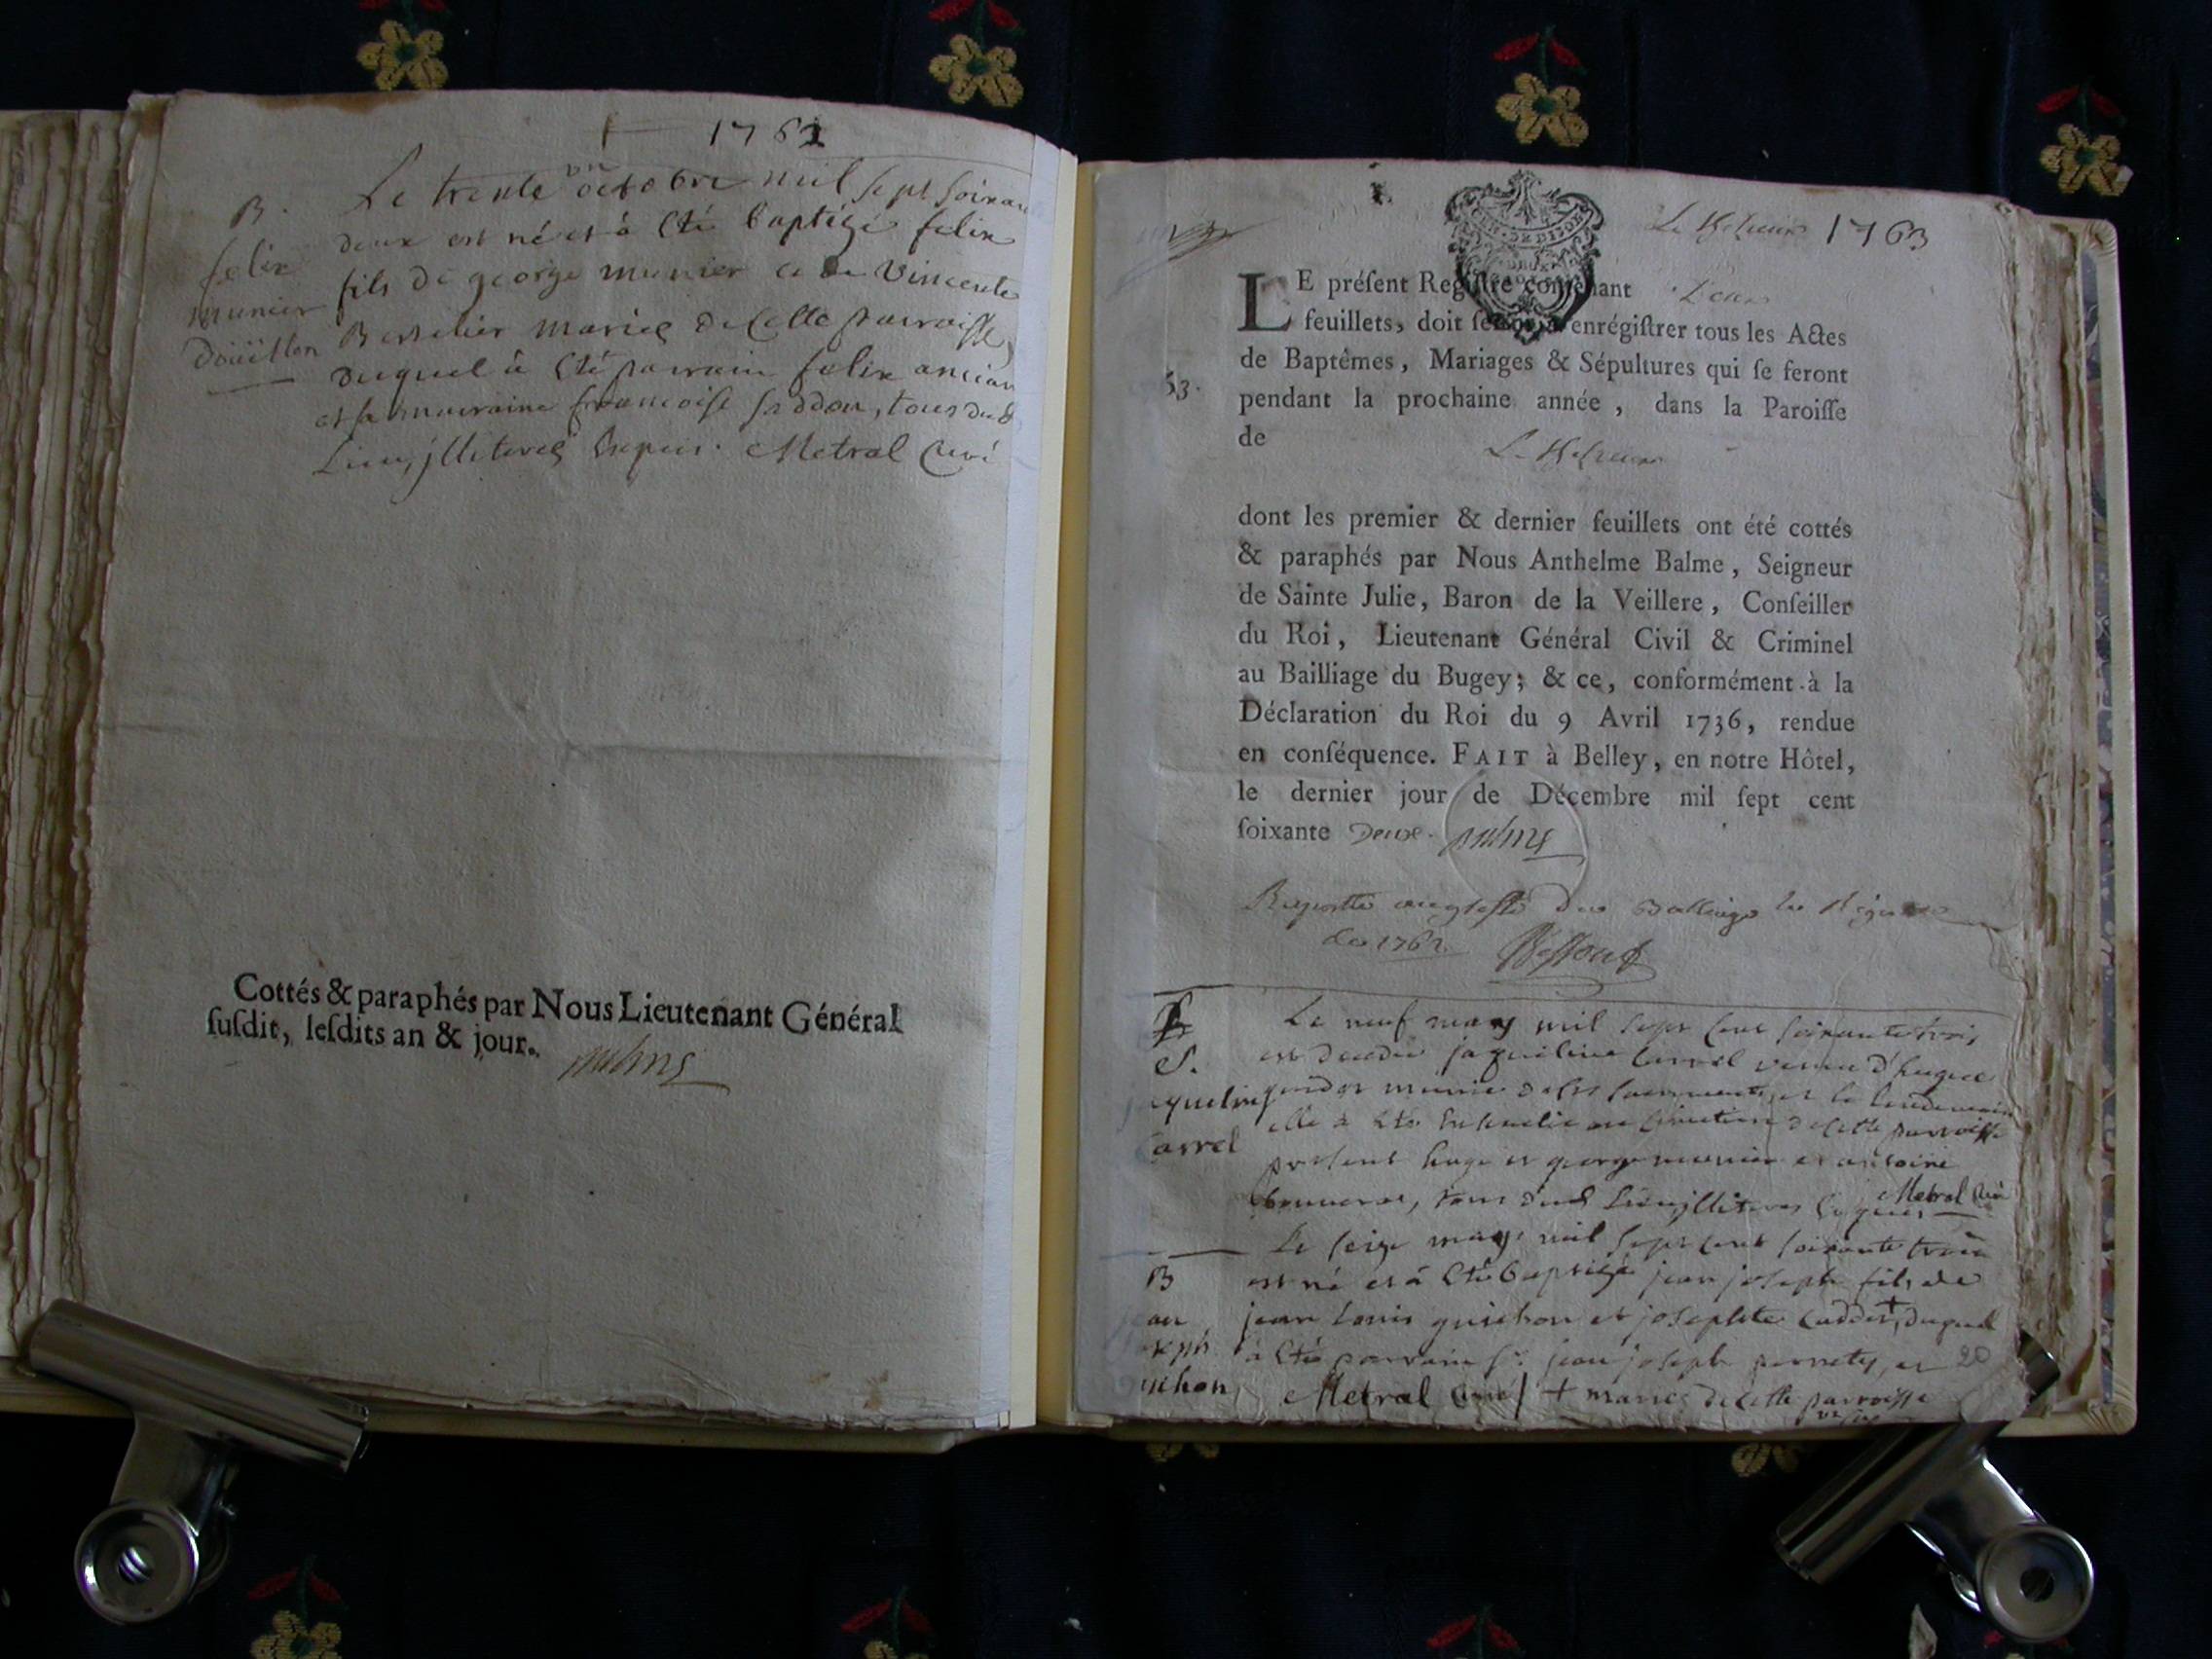 1762
Le trente un octobre mil sept soixan
B.
deux est né et à été baptizé felix
felix
fils de george munier et de Vincente
munier
mariés de cette parroisse,
doüillon
duquel à été parrain felix ancian
et sa marraine francoise tous dud
Lieu, jlliterés Metral Curé
Cottés & paraphés par Nous Lieutenant Général
suſdit, leſdits an & jour.
1763
LE préſent Regiſtre contenant Deux
feuillets, doit ſervir à enrégiſtrer tous les Actes
de Baptêmes, Mariages & Sépultures qui ſe feront
53.
pendant la prochaine année, dans la Paroiſſe
de
dont les premier & dernier feuillets ont été cottés
& paraphés par Nous Anthelme Balme, Seigneur
de Sainte Julie, Baron de la Veillere, Conſeiller
du Roi, Lieutenant Général Civil & Criminel
au Bailliage du Bugey; & ce, conformément à la
Déclaration du Roi du 9 Avril 1736, rendue
en conſéquence. FAIT à Belley, en notre Hôtel,
le dernier jour de Décembre mil ſept cent
ſoixante Deux.
de 1762
Le neuf may mil sept cent soixante trois
S.
est decedée jaqueline Carrel veuve d'hugue
queline
munie de ses sacrements, et le lendemain
arrel
elle à été au cimetiere de cette parroisse
present huge et george munier et antoine
tous dud Lieu jlliteres Metral Curé
Le seize may mil sept cent soixante trois
B
est né et à été baptizé jean joseph fils de
ean
jean Louis guichon et josephte + duquel
oseph
à été parrain sr. jean joseph et 20
uichon
Metral Curé + mariés de cette parroisse